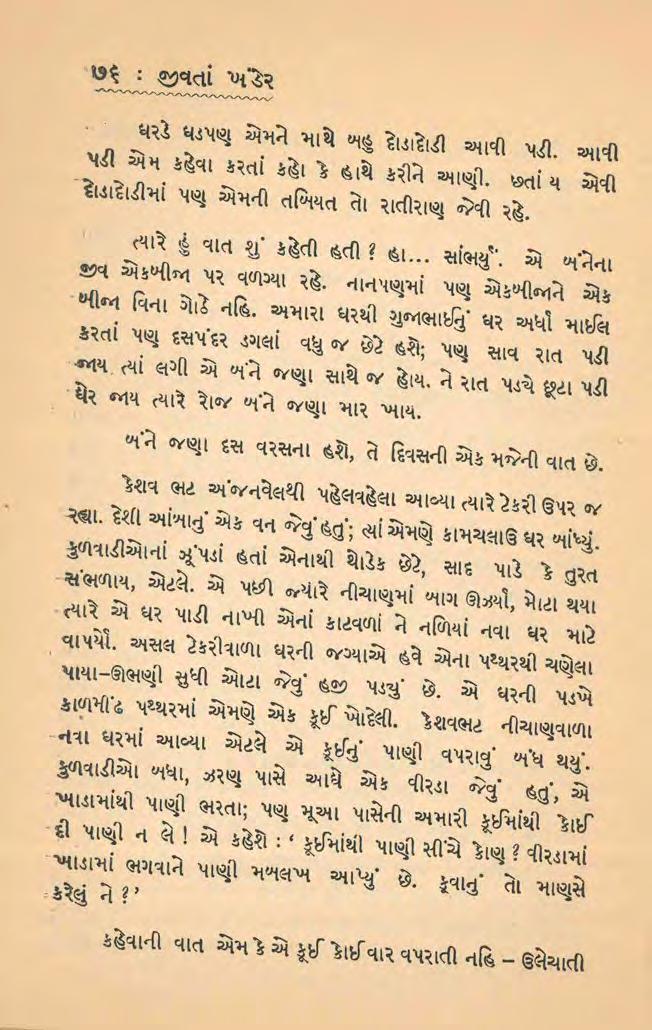 ૭૬ : જીવતાં ખંડેર
ઘરડે ઘડપણ એમને માથે બહુ દોડાદોડી આવી પડી. આવી
પડી એમ કહેવા કરતાં કહો કે હાથે કરીને આણી. છતાં ય એવી
દોડાદોડીમાં પણ એમની તબિયત તો રાતીરાણ જેવી રહે.
ત્યારે હું વાત શું કહેતી હતી ? હા... સાંભર્યું. એ બંનેના
જીવ એકબીજા પર વળગ્યા રહે. નાનપણમાં પણ એકબીજાને એક
બીજા વિના ગોઠે નહિ. અમારા ઘરથી ગુજાભાઈનું ઘર અર્ધા માઈલ
કરતાં પણ દસપંદર ડગલાં વધુ જ છેટે હશે; પણ સાવ રાત પડી
જાય ત્યાં લગી એ બંને જણા સાથે જ હોય. ને રાત પડ્યે છૂટા પડી
ઘેર જાય ત્યારે રોજ બંને જણા માર ખાય.
બંને જણા દસ વરસના હશે, તે દિવસની એક મજેની વાત છે.
કેશવ ભટ અંજનવેલથી પહેલવહેલા આવ્યા ત્યારે ટેકરી ઉપર જ
રહ્યા. દેશી આંબાનું એક વન જેવું હતું; ત્યાં એમણે કામચલાઉ ઘર બાંધ્યું.
કુળવાડીઓનાં ઝૂંપડાં હતાં એનાથી થોડેક છેટે, સાદ પાડે કે તુરત
સંભળાય, એટલે. એ પછી જ્યારે નીચાણમાં બાગ ઊઝર્યો, મોટા થયા
ત્યારે એ ઘર પાડી નાખી એનાં કાટવળાં ને નળિયાં નવા ઘર માટે
વાપર્યાં. અસલ ટેકરીવાળા ઘરની જગ્યાએ હવે એના પથ્થરથી ચણેલા
પાયા-ઊભણી સુધી ઓટા જેવું હજી પડ્યું છે. એ ઘરની પડખે
કાળમીંઢ પથ્થરમાં એમણે એક કૂઈ ખોદેલી. કેશવભટ નીચાણવાળા
નવા ઘરમાં આવ્યા એટલે એ કૂઈનું પાણી વપરાવું બંધ થયું.
કુળવાડીઓ બધા, ઝરણ પાસે આઘે એક વીરડા જેવું હતું, એ
ખાડામાંથી પાણી ભરતા; પણ મૂઆ પાસેની અમારી કૂઈમાંથી કોઈ
દી પાણી ન લે ! એ કહેશે : ‘ કૂઈમાંથી પાણી સીંચે કોણ ? વીરડામાં
ખાડામાં ભગવાને પાણી મબલખ આપ્યું છે. કૂવાનું તો માણસે
કરેલું ને ?’
કહેવાની વાત એમ કે એ કૂઈ કોઈ વાર વપરાતી નહિ – ઉલેચાતી